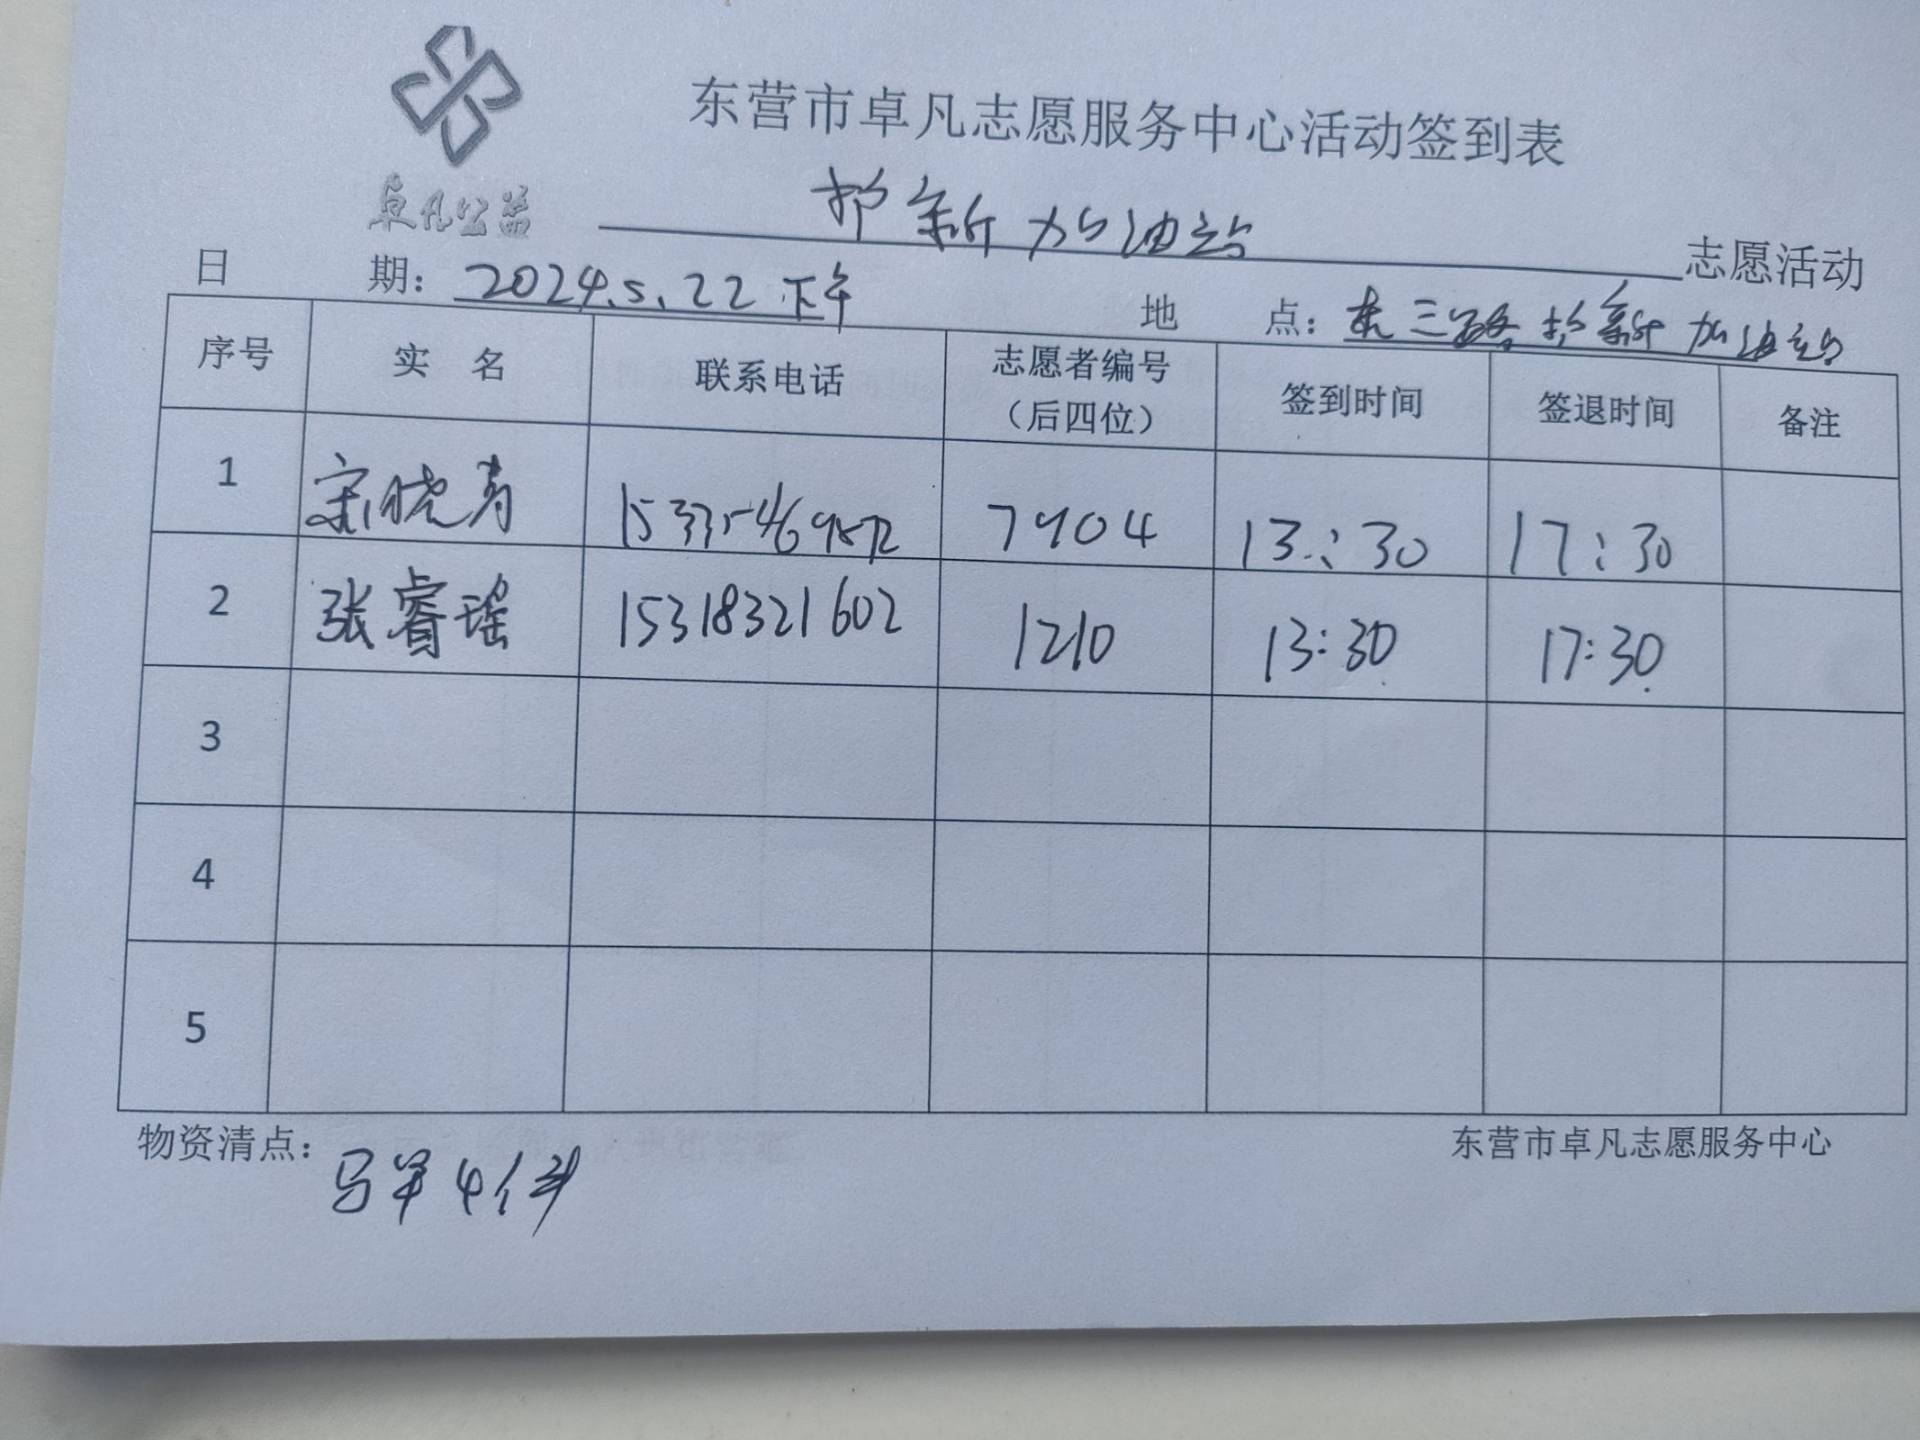 东营市卓凡志愿服务中心活动签到表
卓凡公益
护新加油站 志愿活动
日 期：2024.5.22 下午 地 点：东三路护新加油站
序号 实 名 联系电话 志愿者编号（后四位） 签到时间 签退时间 备注
1 宋晓青 7904 13:30 17:30
2 张睿瑶 15318321602 1210 13:30 17:30
3
4
5
物资清点： 马甲4件 东营市卓凡志愿服务中心